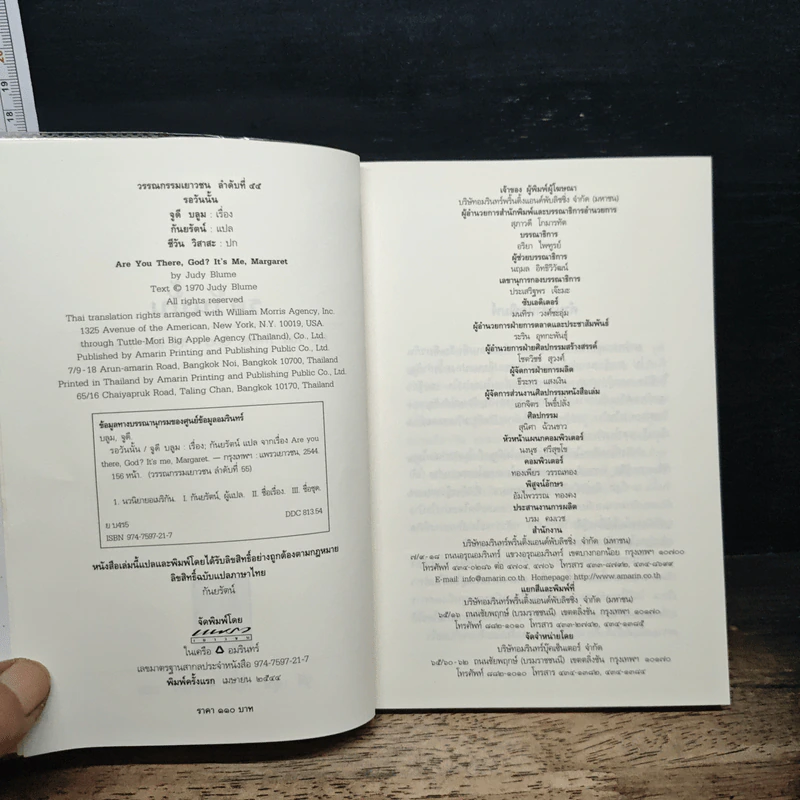 18 19 20
วรรณกรรมเยาวชน ลำดับที่ ๕๕
รอวันนั้น
จูดี บลูม : เรื่อง
กันยรัตน์ : แปล
ชีวัน วิสาสะ : ปก
Are You There, God? It's Me, Margaret
by Judy Blume
Text © 1970 Judy Blume
All rights reserved
Thai translation rights arranged with William Morris Agency, Inc.
1325 Avenue of the American, New York, N.Y. 10019, USA.
through Tuttle-Mori Big Apple Agency (Thailand), Co., Ltd.
Published by Amarin Printing and Publishing Public Co., Ltd.
7/9-18 Arun-amarin Road, Bangkok Noi, Bangkok 10700, Thailand
Printed in Thailand by Amarin Printing and Publishing Public Co., Ltd.
65/16 Chaiyapruk Road, Taling Chan, Bangkok 10170, Thailand
ข้อมูลทางบรรณานุกรมของศูนย์ข้อมูลอมรินทร์
บลูม, จูดี.
รอวันนั้น / จูดี บลูม : เรื่อง; กันยรัตน์ แปล จากเรื่อง Are you
there, God? It's me, Margaret. — กรุงเทพฯ : แพรวเยาวชน, 2544.
156 หน้า. (วรรณกรรมเยาวชน ลำดับที่ 55)
1. นวนิยายอเมริกัน. I. กันยรัตน์, ผู้แปล. II. ชื่อเรื่อง. III. ชื่อชุด.
DDC 813.54
ย บ435
ISBN 974-7597-21-7
หนังสือเล่มนี้แปลและพิมพ์โดยได้รับลิขสิทธิ์อย่างถูกต้องตามกฎหมาย
ลิขสิทธิ์ฉบับแปลภาษาไทย
กันยรัตน์
จัดพิมพ์โดย
แพรว
เยาวชน
ในเครือ อมรินทร์
เลขมาตรฐานสากลประจำหนังสือ 974-7597-21-7
พิมพ์ครั้งแรก เมษายน ๒๕๔๔
ราคา ๑๑๐ บาท
เจ้าของ ผู้พิมพ์ผู้โฆษณา
บริษัทอมรินทร์พริ้นติ้งแอนด์พับลิชชิ่ง จำกัด (มหาชน)
ผู้อำนวยการสำนักพิมพ์และบรรณาธิการอำนวยการ
สุภาวดี โกมารทัต
บรรณาธิการ
อริยา ไพฑูรย์
ผู้ช่วยบรรณาธิการ
นฤมล อิทธิวิวัฒน์
เลขานุการกองบรรณาธิการ
ประเสริฐพร เจ๊ะมะ
ซับเอดิเตอร์
มนทิรา วงศ์ชะอุ่ม
ผู้อำนวยการฝ่ายการตลาดและประชาสัมพันธ์
ระริน อุทกะพันธุ์
ผู้อำนวยการฝ่ายศิลปกรรมสร้างสรรค์
โชตวิชช์ สุวงศ์
ผู้จัดการฝ่ายการผลิต
ธีระทร แสงเงิน
ผู้จัดการส่วนงานศิลปกรรมหนังสือเล่ม
เอกจิตร โพธิ์ปลั่ง
ศิลปกรรม
สุนิศา ฉ้วนขาว
หัวหน้าแผนกคอมพิวเตอร์
นงนุช ศรีสุขโข
คอมพิวเตอร์
ทองเพียร วรรณทอง
พิสูจน์อักษร
อัมไพวรรณ ทองคง
ประสานงานการผลิต
บรม คมเวช
สำนักงาน
บริษัทอมรินทร์พริ้นติ้งแอนด์พับลิชชิ่ง จำกัด (มหาชน)
๗/๙-๑๘ ถนนอรุณอมรินทร์ แขวงอรุณอมรินทร์ เขตบางกอกน้อย กรุงเทพฯ ๑๐๗๐๐
โทรศัพท์ ๔๓๔-๐๒๘๖ ต่อ ๔๗๐๔, ๔๗๐๖ โทรสาร
E-mail: info@amarin.co.th Homepage: http://www.amarin.co.th
แยกสีและพิมพ์ที่
บริษัทอมรินทร์พริ้นติ้งแอนด์พับลิชชิ่ง จำกัด (มหาชน)
๖๕/๑๖ ถนนชัยพฤกษ์ (บรมราชชนนี) เขตตลิ่งชัน กรุงเทพฯ ๑๐๑๗๐
โทรศัพท์ ๘๘๒-๑๐๑๐ โทรสาร ๔๓๓-๒๗๔๒, ๔๓๔-๑๓๘๕
จัดจำหน่ายโดย
บริษัทอมรินทร์บุ๊คเซ็นเตอร์ จำกัด
๖๕/๖๐-๖๒ ถนนชัยพฤกษ์ (บรมราชชนนี) เขตตลิ่งชัน กรุงเทพฯ ๑๐๑๗๐
โทรศัพท์ ๘๘๒-๑๐๑๐ โทรสาร